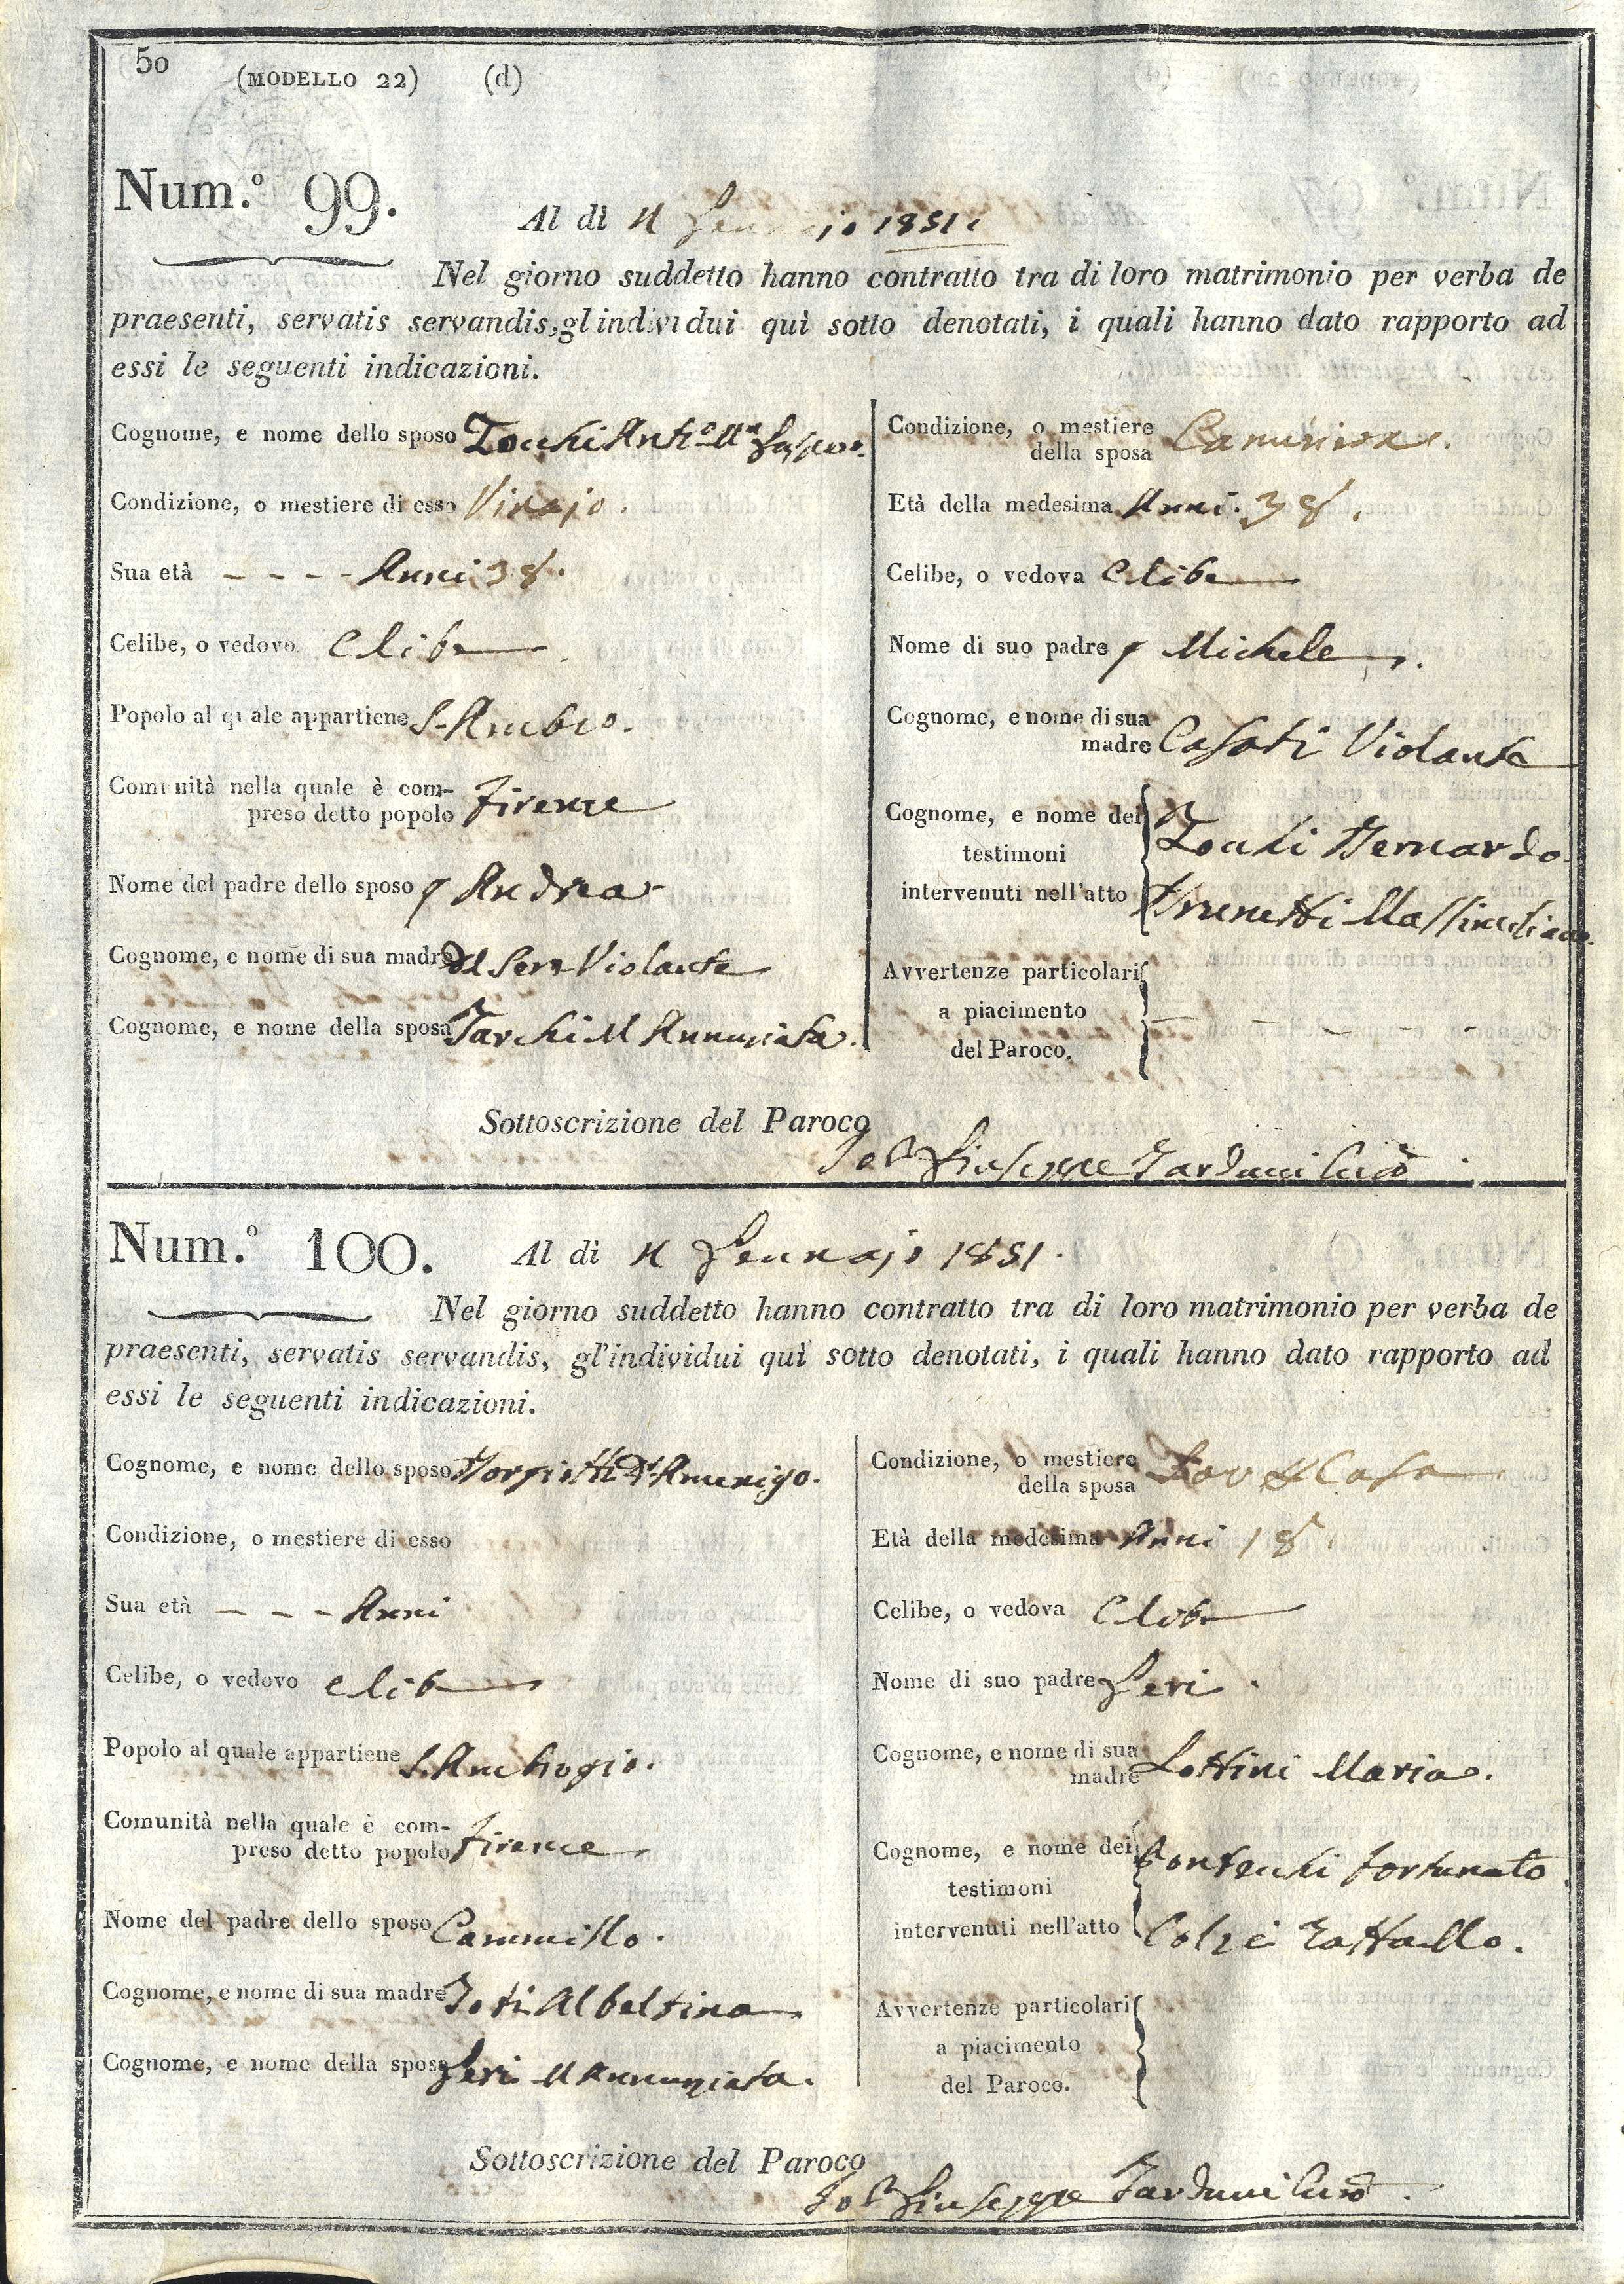 50
(MODELLO 22) (d)
Num.° 99.
Al dì 11 Gennajo 1851
Nel giorno suddetto hanno contratto tra di loro matrimonio per verba de
praesenti, servatis servandis, gl individui quì sotto denotati, i quali hanno dato rapporto ad
essi le seguenti indicazioni.
Cognome, e nome dello sposo Tocchi Ant.o M.a Gaspero.
Condizione, o mestiere di esso Vinajo.
Sua età - - - - Anni 38.
Celibe, o vedovo Celibe
Popolo al quale appartiene S. Ambro.
Comunità nella quale è com-
preso detto popolo Firenze
Nome del padre dello sposo q Andrea
Cognome, e nome di sua madre Del Sere Violante
Cognome, e nome della sposa Tarchi M Annunziata.
Condizione, o mestiere
della sposa
Età della medesima Anni. 38.
Celibe, o vedova Celibe
Nome di suo padre q Michele
Cognome, e nome di sua
madre Casati Violante
Cognome, e nome dei
testimoni Tocchi Bernardo
intervenuti nell'atto Brunetti Massimiliano
Avvertenze particolari
a piacimento
del Paroco. - - - - -
Sottoscrizione del Paroco
Giuseppe Tarduci Curo
Num.° 100. Al dì 11 Gennajo 1851.
Nel giorno suddetto hanno contratto tra di loro matrimonio per verba de
praesenti, servatis servandis, gl'individui quì sotto denotati, i quali hanno dato rapporto ad
essi le seguenti indicazioni.
Cognome, e nome dello sposo Amerigo.
Condizione, o mestiere di esso
Sua età - - - Anni
Celibe, o vedovo Celibe
Popolo al quale appartiene S. Ambrogio.
Comunità nella quale è com-
preso detto popolo Firenze
Nome del padre dello sposo Cammillo.
Cognome, e nome di sua madre Albeltina
Cognome, e nome della sposa Geri M Annunziata.
Condizione, o mestiere
della sposa Casa
Età della medesima Anni 18.
Celibe, o vedova Celibe
Nome di suo padre Geri.
Cognome, e nome di sua
madre Lottini Maria.
Cognome, e nome dei
testimoni Fortunato
intervenuti nell'atto Colzi Raffaello.
Avvertenze particolari
a piacimento
del Paroco.
Sottoscrizione del Paroco
Giuseppe Tarduci Curo.